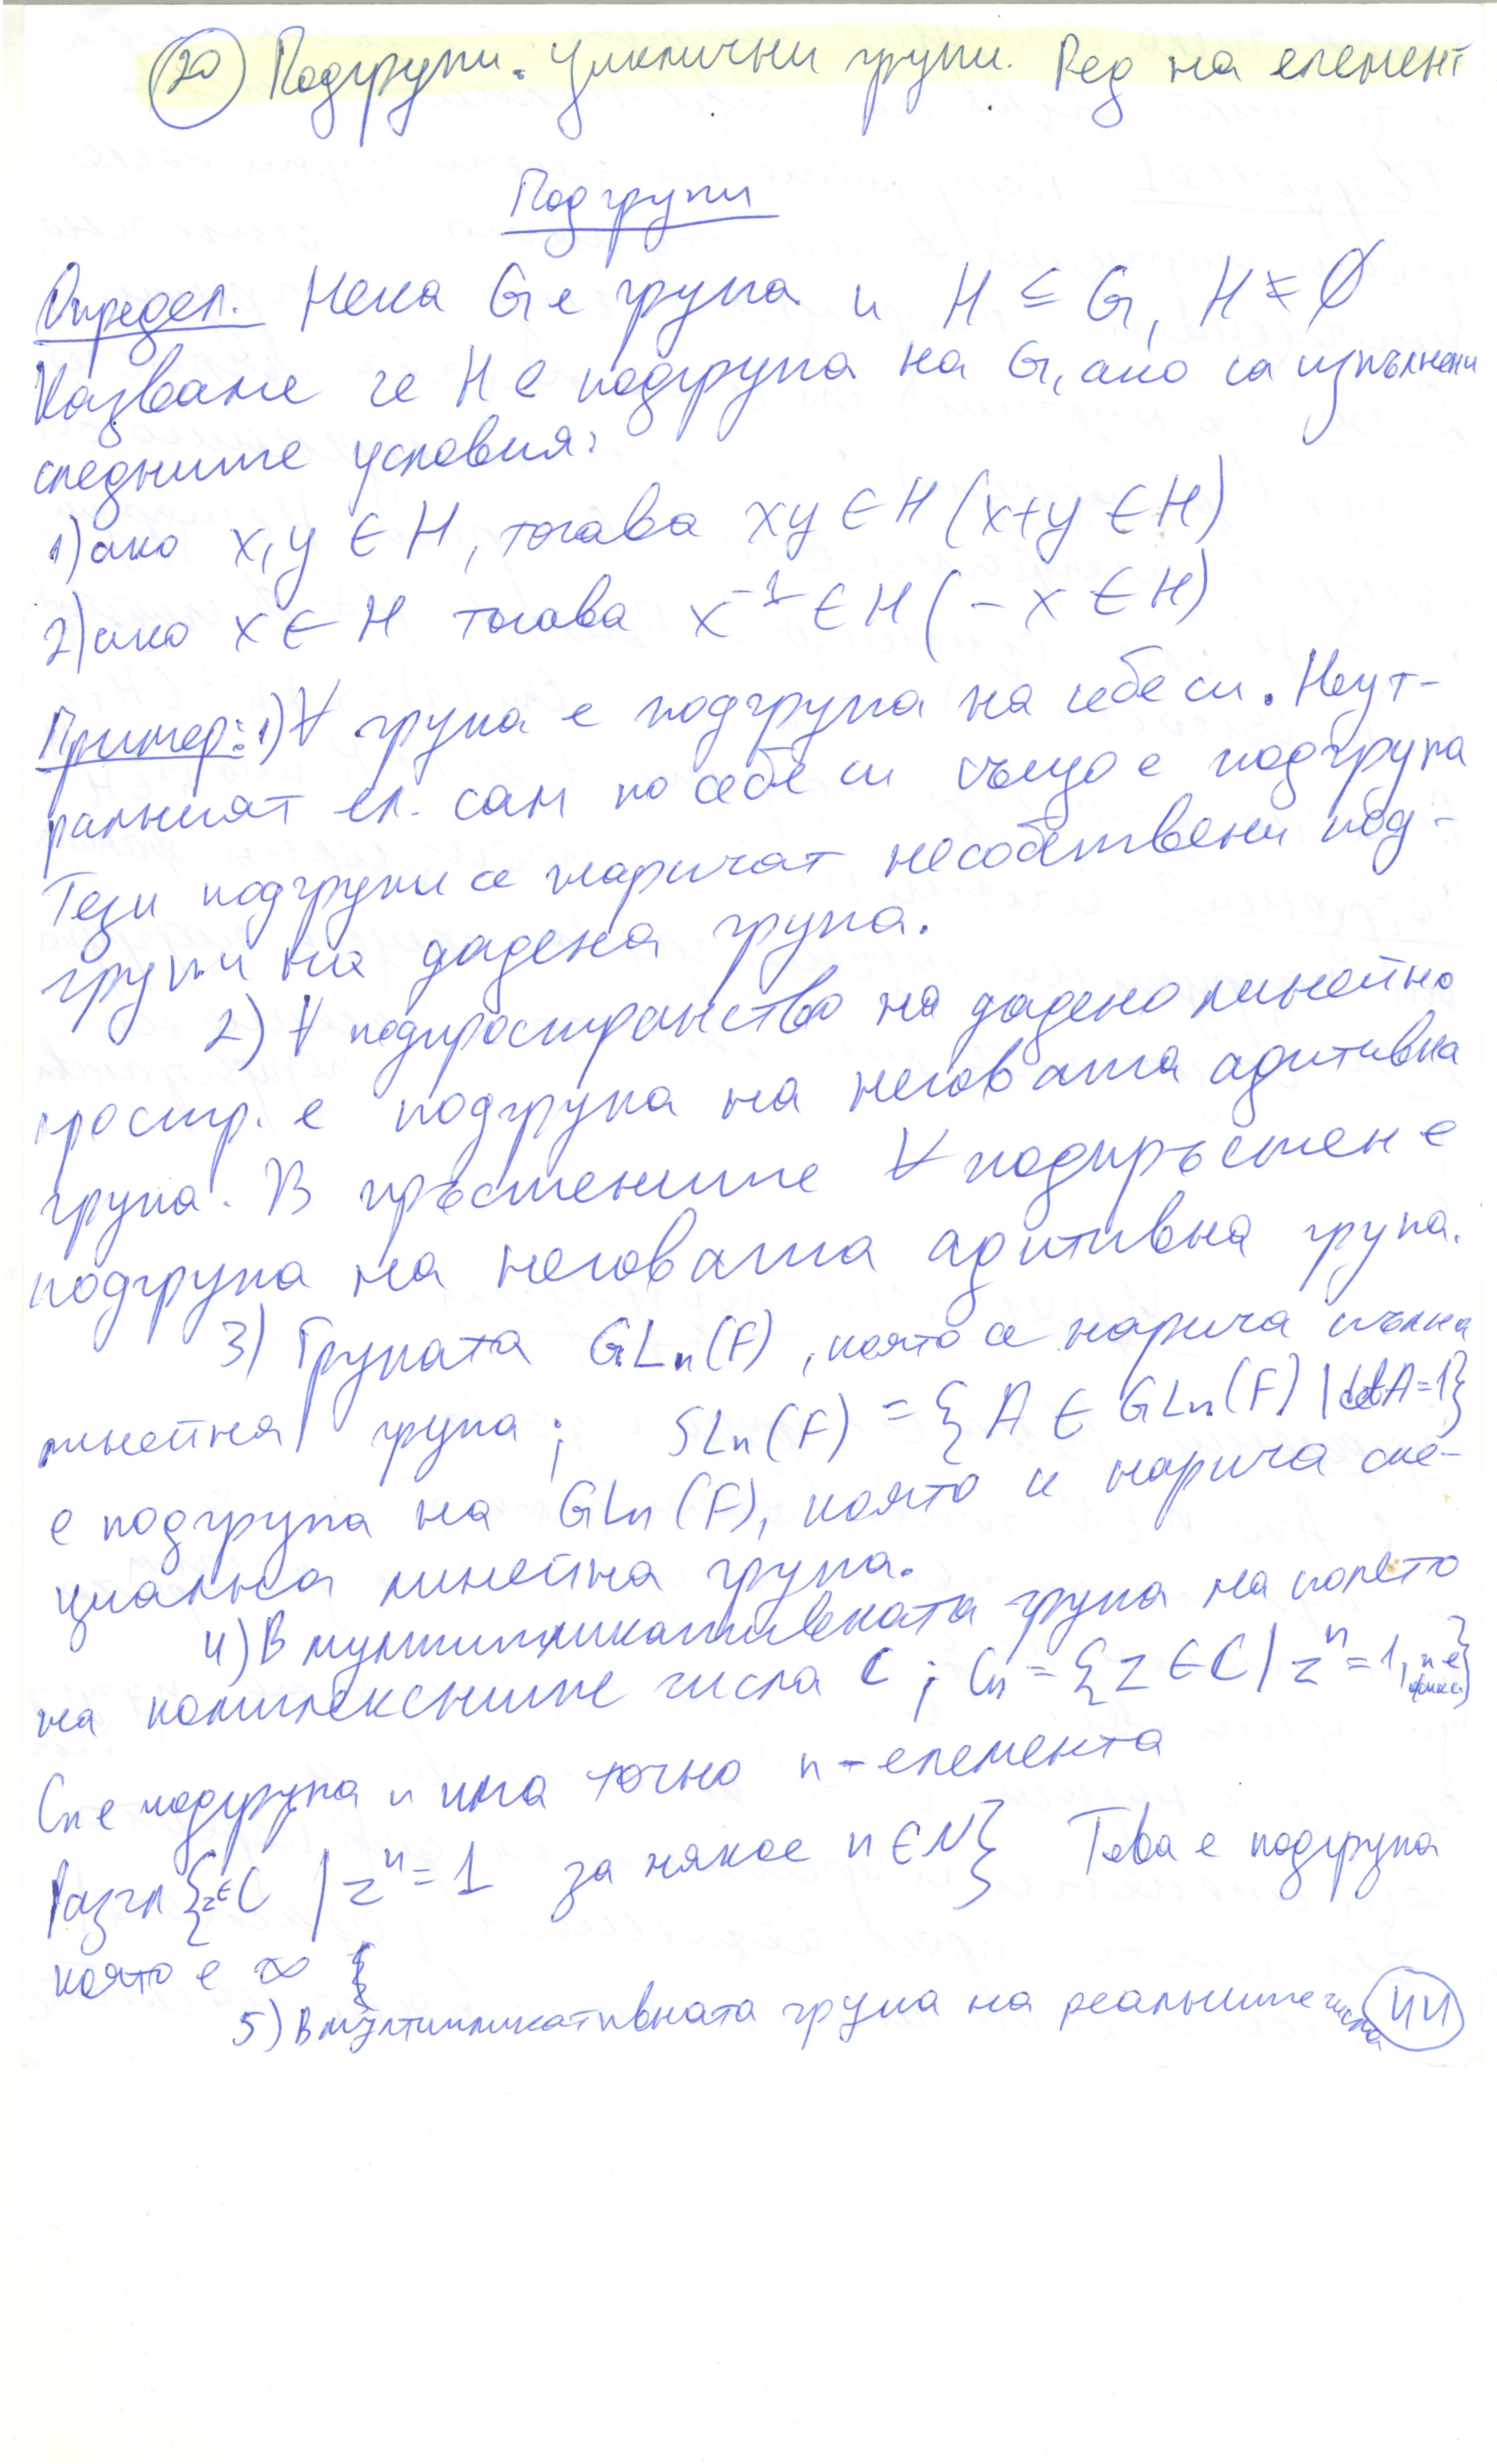 20 Подгрупи. Циклични групи. Ред на елемент
Подгрупи
Определ. Нека G е група и H ⊆ G, H ≠ ∅
Казваме че H е подгрупа на G, ако са изпълнени
следните условия:
1) ако x, y ∈ H, тогава xy ∈ H (x+y ∈ H)
2) ако x ∈ H тогава x⁻¹ ∈ H (-x ∈ H)
Пример: 1) ∀ група е подгрупа на себе си. Неут-
ралният ел. сам по себе си също е подгрупа
Тези подгрупи се наричат несобствени под-
групи на дадена група.
2) ∀ подпространство на дадено линейно
простр. е подгрупа на неговата адитивна
група. В пръстените ∀ подпръстен е
подгрупа на неговата адитивна група.
3) Групата GLₙ(F), която се нарича пълна
линейна група; SLₙ(F) = {A ∈ GLₙ(F) | detA=1}
е подгрупа на GLₙ(F), която се нарича спе-
циална линейна група.
4) В мултипликативната група на полето
на комплексните числа C; Cₙ = {z ∈ C | zⁿ = 1, n е фикс}
Cₙ е подгрупа и има точно n-елемента
Разгл {z∈C | zⁿ = 1 за някое n ∈ N} Това е подгрупа
която е ∞
5) В мултипликативната група на реалните числа 44